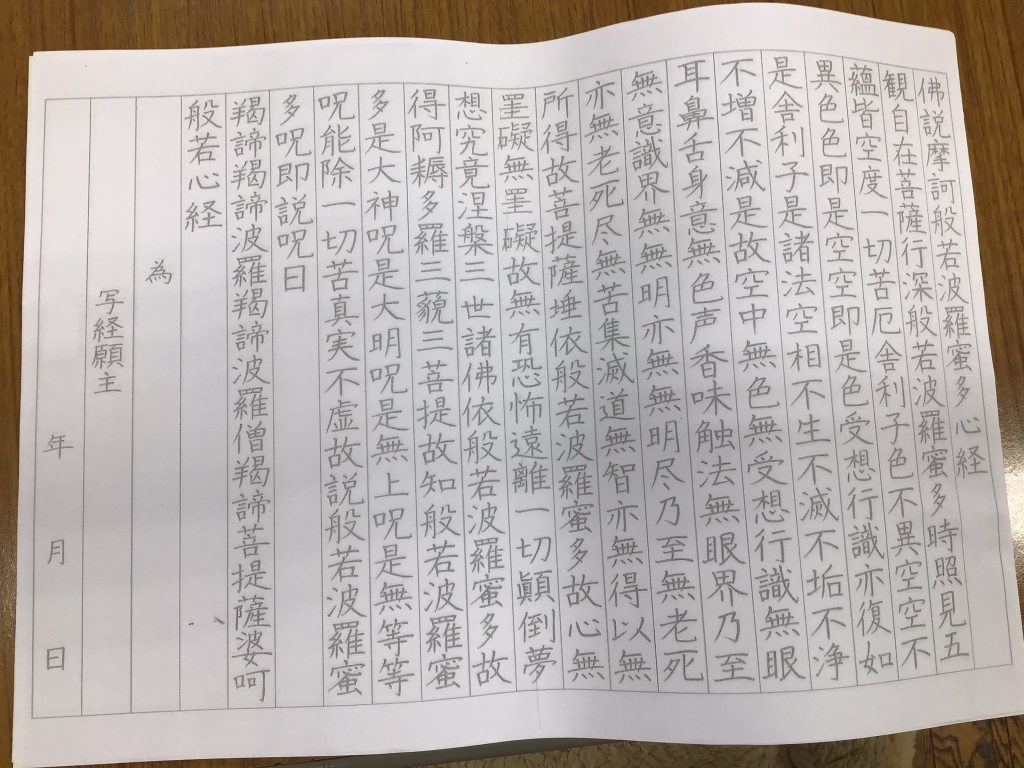 佛説摩訶般若波羅蜜多心経
観自在菩薩行深般若波羅蜜多時照見五
蘊皆空度一切苦厄舎利子色不異空空不
異色色即是空空即是色受想行識亦復如
是舎利子是諸法空相不生不滅不垢不浄
不増不減是故空中無色無受想行識無眼
耳鼻舌身意無色声香味触法無眼界乃至
無意識界無無明亦無無明尽乃至無老死
亦無老死尽無苦集滅道無智亦無得以無
所得故菩提薩埵依般若波羅蜜多故心無
罣礙無罣礙故無有恐怖遠離一切顛倒夢
想究竟涅槃三世諸佛依般若波羅蜜多故
得阿耨多羅三藐三菩提故知般若波羅蜜
多是大神呪是大明呪是無上呪是無等等
呪能除一切苦真実不虚故説般若波羅蜜
多呪即説呪日
羯諦羯諦波羅羯諦波羅僧羯諦菩提薩婆呵
般若心経
為
写経願主
年月日